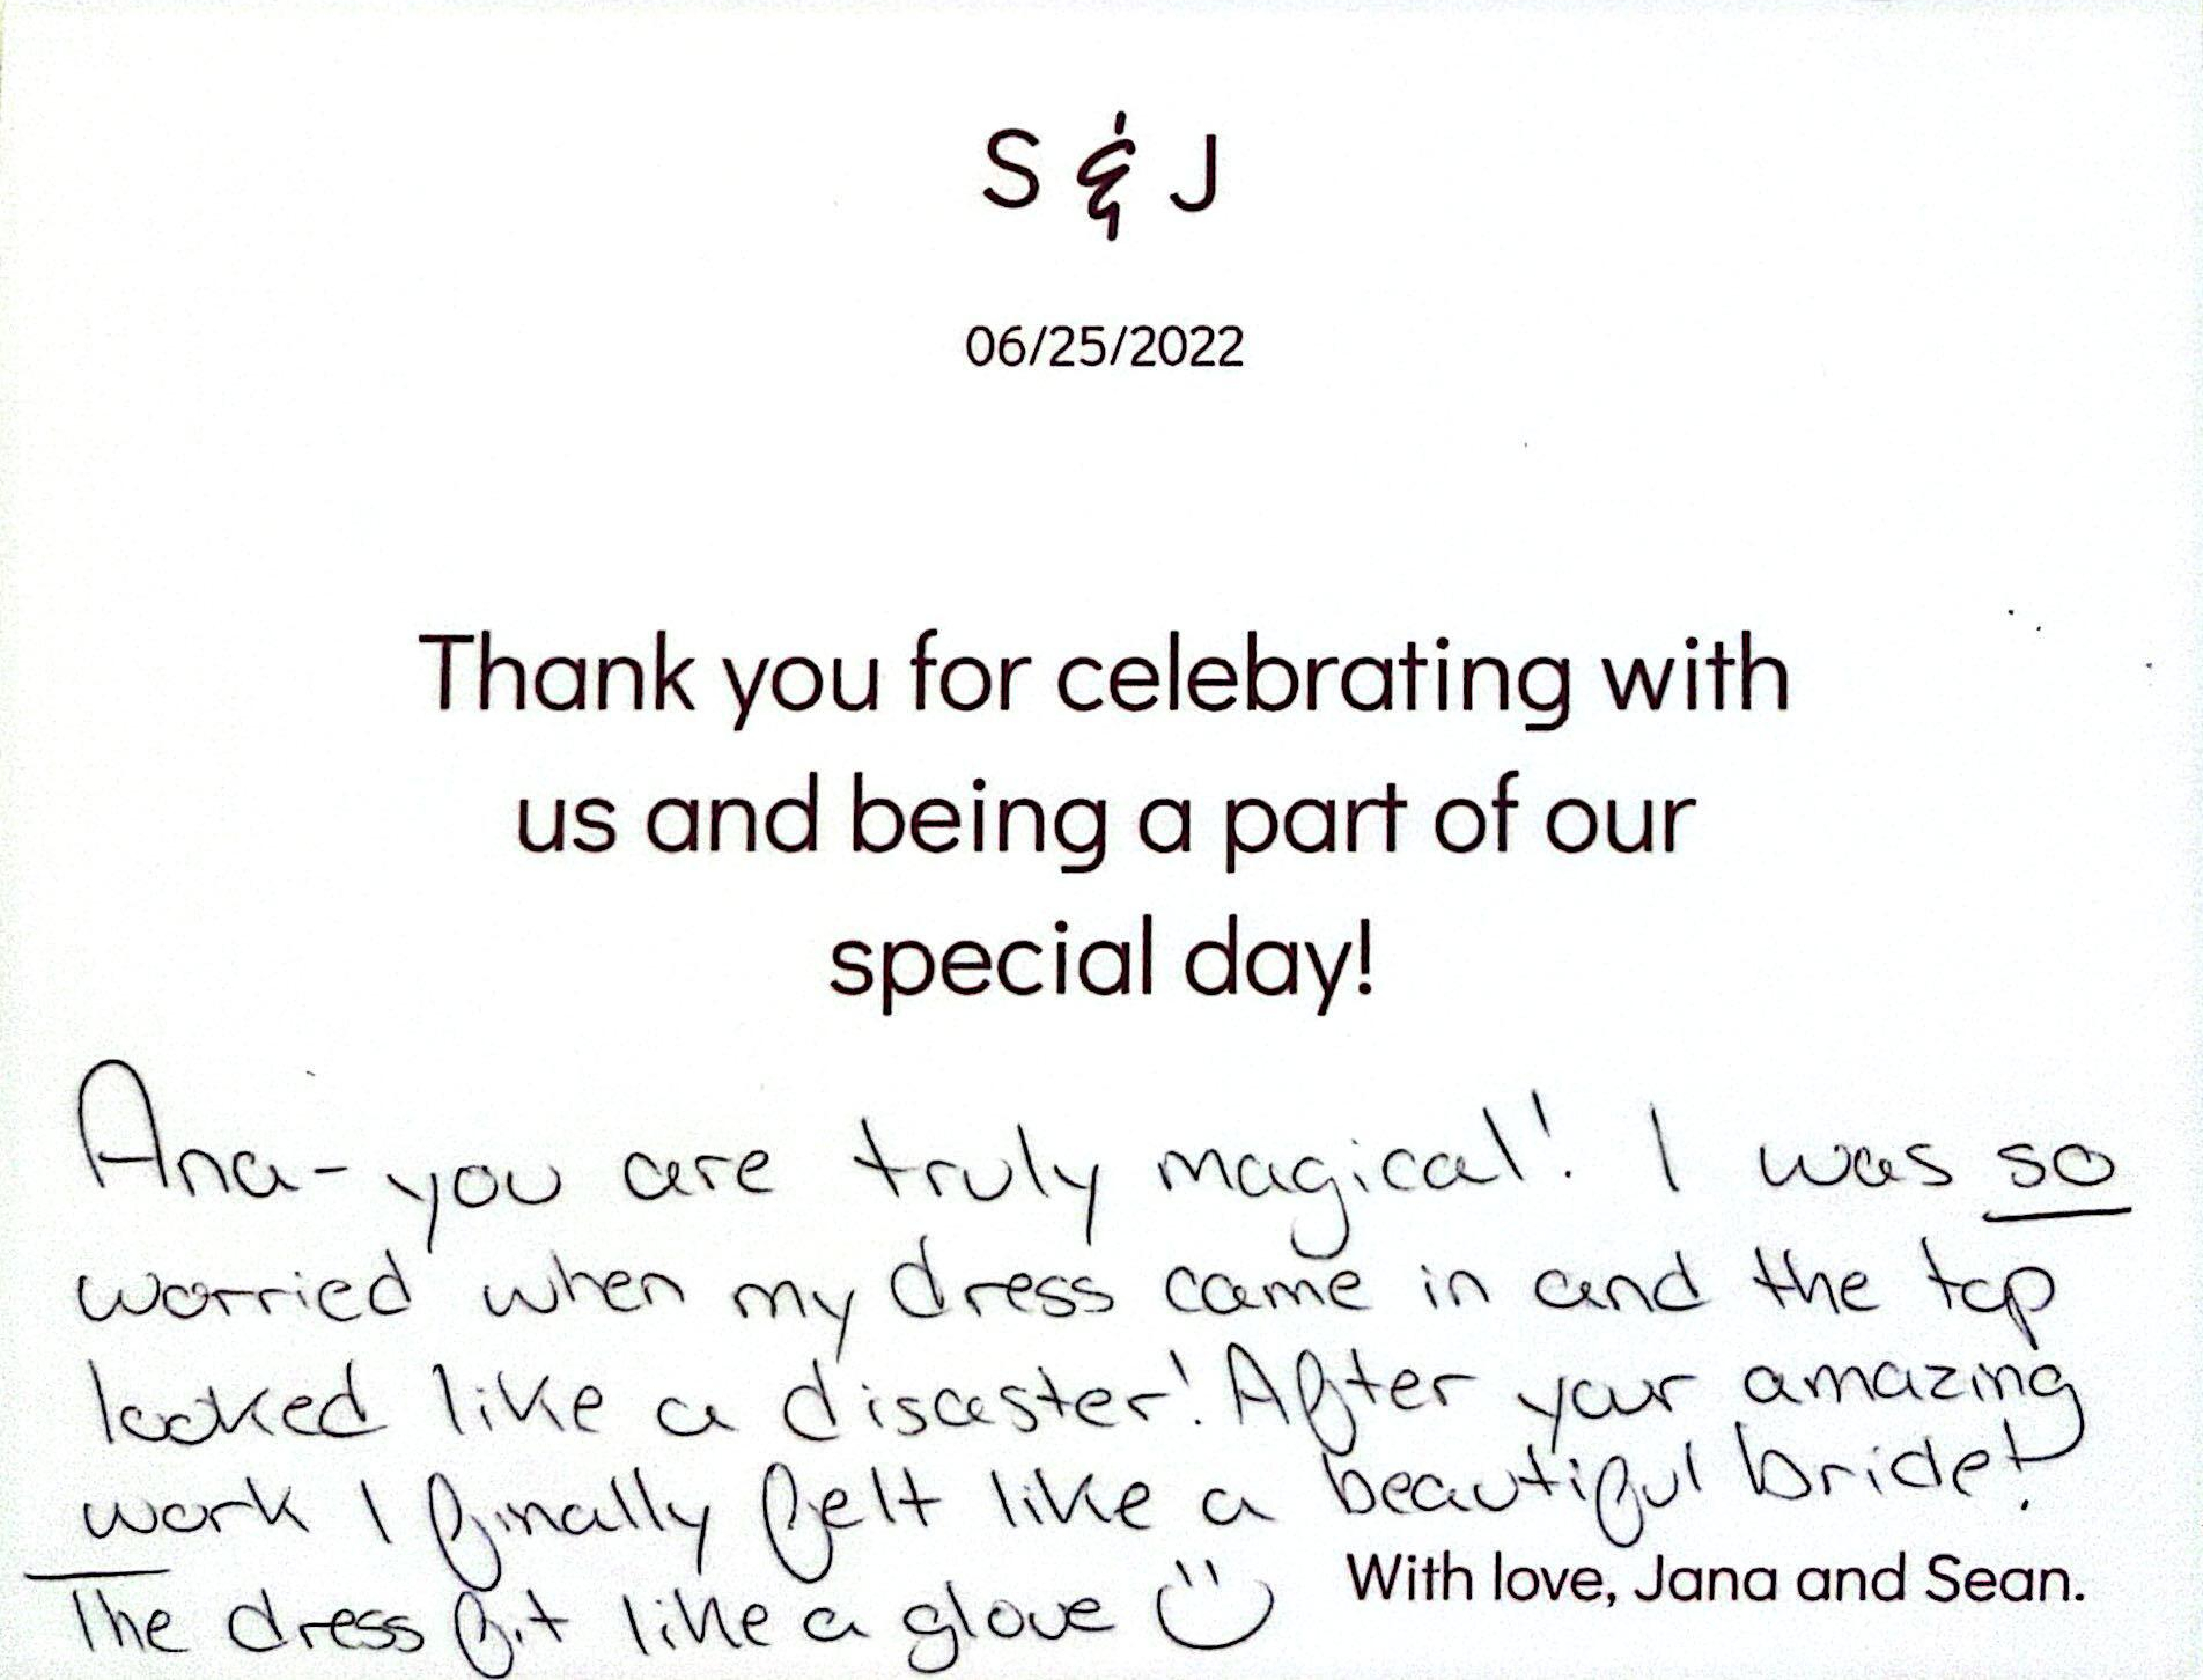 S & J
06/25/2022
Thank you for celebrating with
us and being a part of our
special day!
Ana- you are truly magical! I was so
worried when my dress came in and the top
looked like a disaster! After your amazing
work I finally felt like a beautiful bride!
The dress fit like a glove
With love, Jana and Sean.